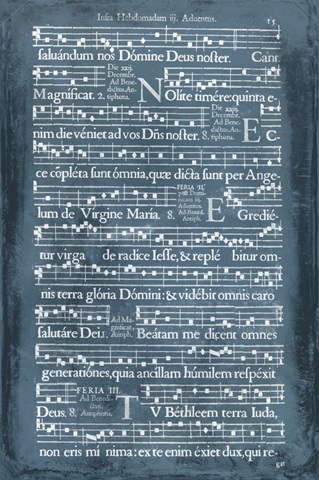 Infra Hebdomadam iij. Aduentus. 15
ſaluándum nos Dómine Deus noſter. Cant.
Magníficat. 2. Die xxj. Decembr. Ad Benedictus, Antiphona. NOlite timére: quinta e-
nim die véniet ad vos Dñs noſter. 8. Antiph. EC-
ce cõpléta ſunt ómnia, quæ dicta ſunt per Ange-
lum de Vírgine María. 8. FERIA II. Ad Bened. Antiph. EGredié-
tur virga de radíce Ieſſe, & replé bitur om-
nis terra glória Dómini: & vidébit omnis caro
ſalutáre Dei. Ad Magnificat, Antiph. Beátam me dicent omnes
generatiónes, quia ancíllam húmilem reſpéxit
Deus. 8. FERIA III. Ad Benedictus, Antiphona. TV Béthleem terra Iuda,
non eris mí nima: ex te enim éxiet dux, qui re-
gat